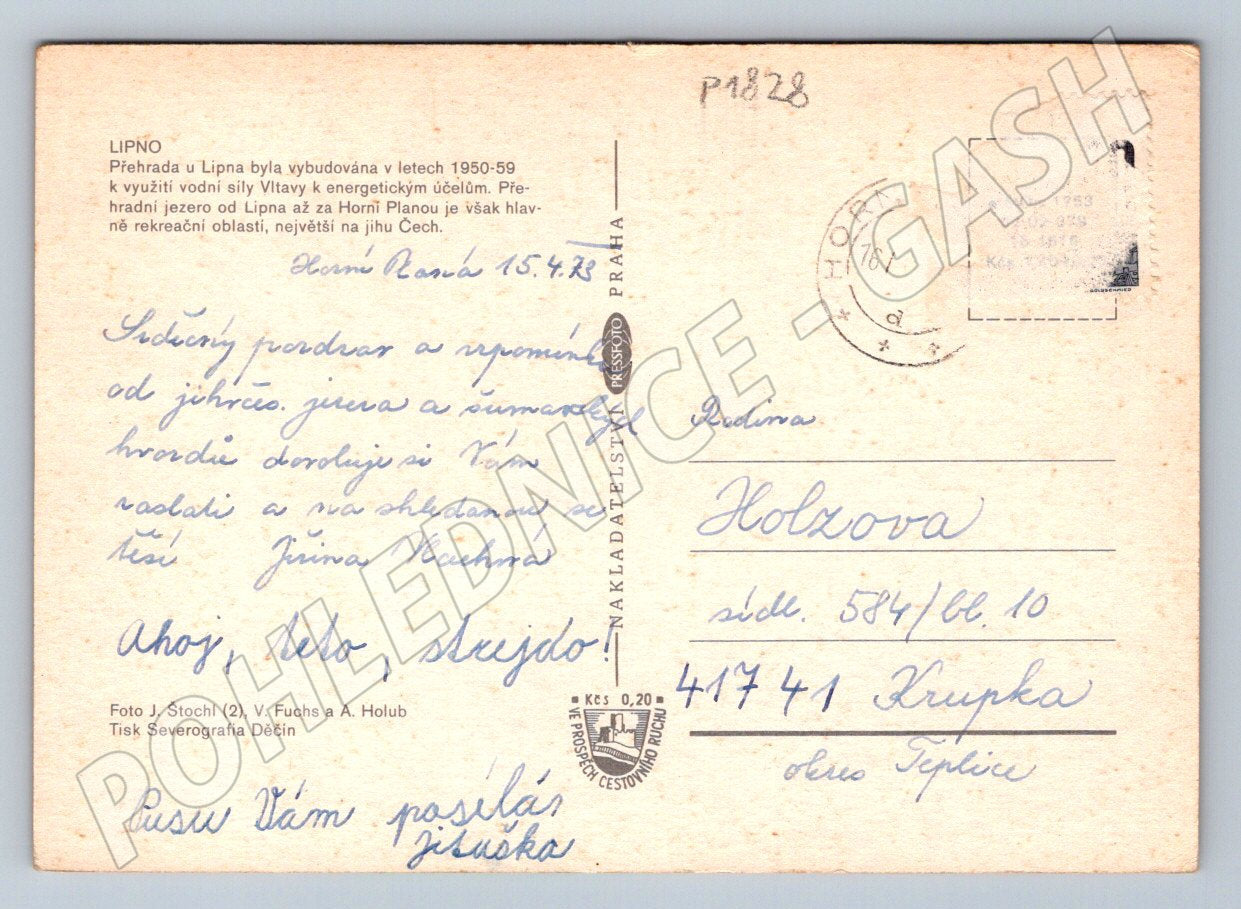 P1828
LIPNO
Přehrada u Lipna byla vybudována v letech 1950-59
k využití vodní síly Vltavy k energetickým účelům. Pře-
hradní jezero od Lipna až za Horní Planou je však hlav-
ně rekreační oblastí, největší na jihu Čech.
Horní Planá 15.4.73
Srdečný pozdrav a vzpomínku
od jihočes. jezera a šumavských
hvozdů dovoluje si Vám
zaslati a na shledanou se
těší Jiřina
Ahoj, teto, strejdo!
Foto J. Štochl (2), V. Fuchs a A. Holub
Tisk Severografia Děčín
Pusu Vám posílá
Jituška
NAKLADATELSTVÍ PRESSFOTO PRAHA
Kčs 0,20
VE PROSPĚCH CESTOVNÍHO RUCHU
HORN
Rodina
Holzova
sídl. 584/bl. 10
41741 Krupka
okres Teplice
POHLEDNICE - GASH